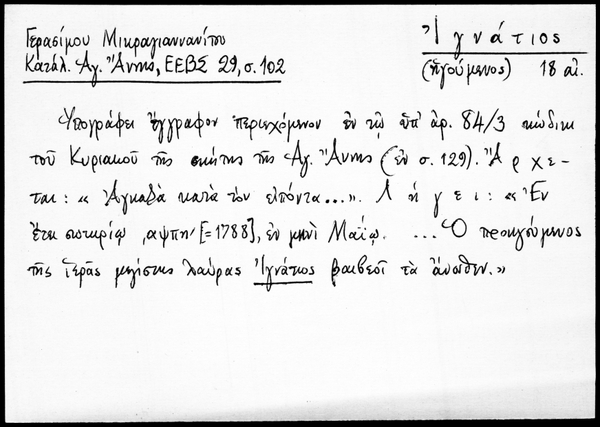 Γερασίμου Μικραγιαννανίτου
Κατάλ. Ἁγ. Ἄννης, ΕΕΒΣ 29, σ. 102
Ἰγνάτιος
(ἡγούμενος) 18 αἰ.
Ὑπογράφει ἔγγραφον περιεχόμενον ἐν τῷ ὑπ' ἀρ. 84/3 κώδικι
τοῦ Κυριακοῦ τῆς σκήτης τῆς Ἁγ. Ἄννης (ἐν σ. 129). Ἄρχε-
ται: «Ἀγκαδὰ κατὰ τὸν εἰπόντα...». Λήγει: «Ἐν
ἔτει σωτηρίῳ ͵αψπη' [=1788], ἐν μηνὶ Μαΐῳ. ...Ὁ προηγούμενος
τῆς Ἱερᾶς μεγίστης Λαύρας Ἰγνάτιος βαιβεοῖ τὰ ἄνωθεν.»